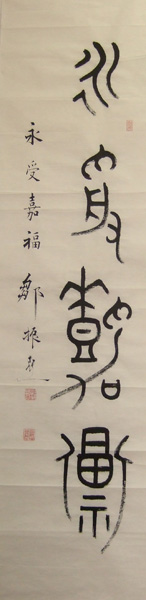 永受嘉福
永受嘉福
鄒振